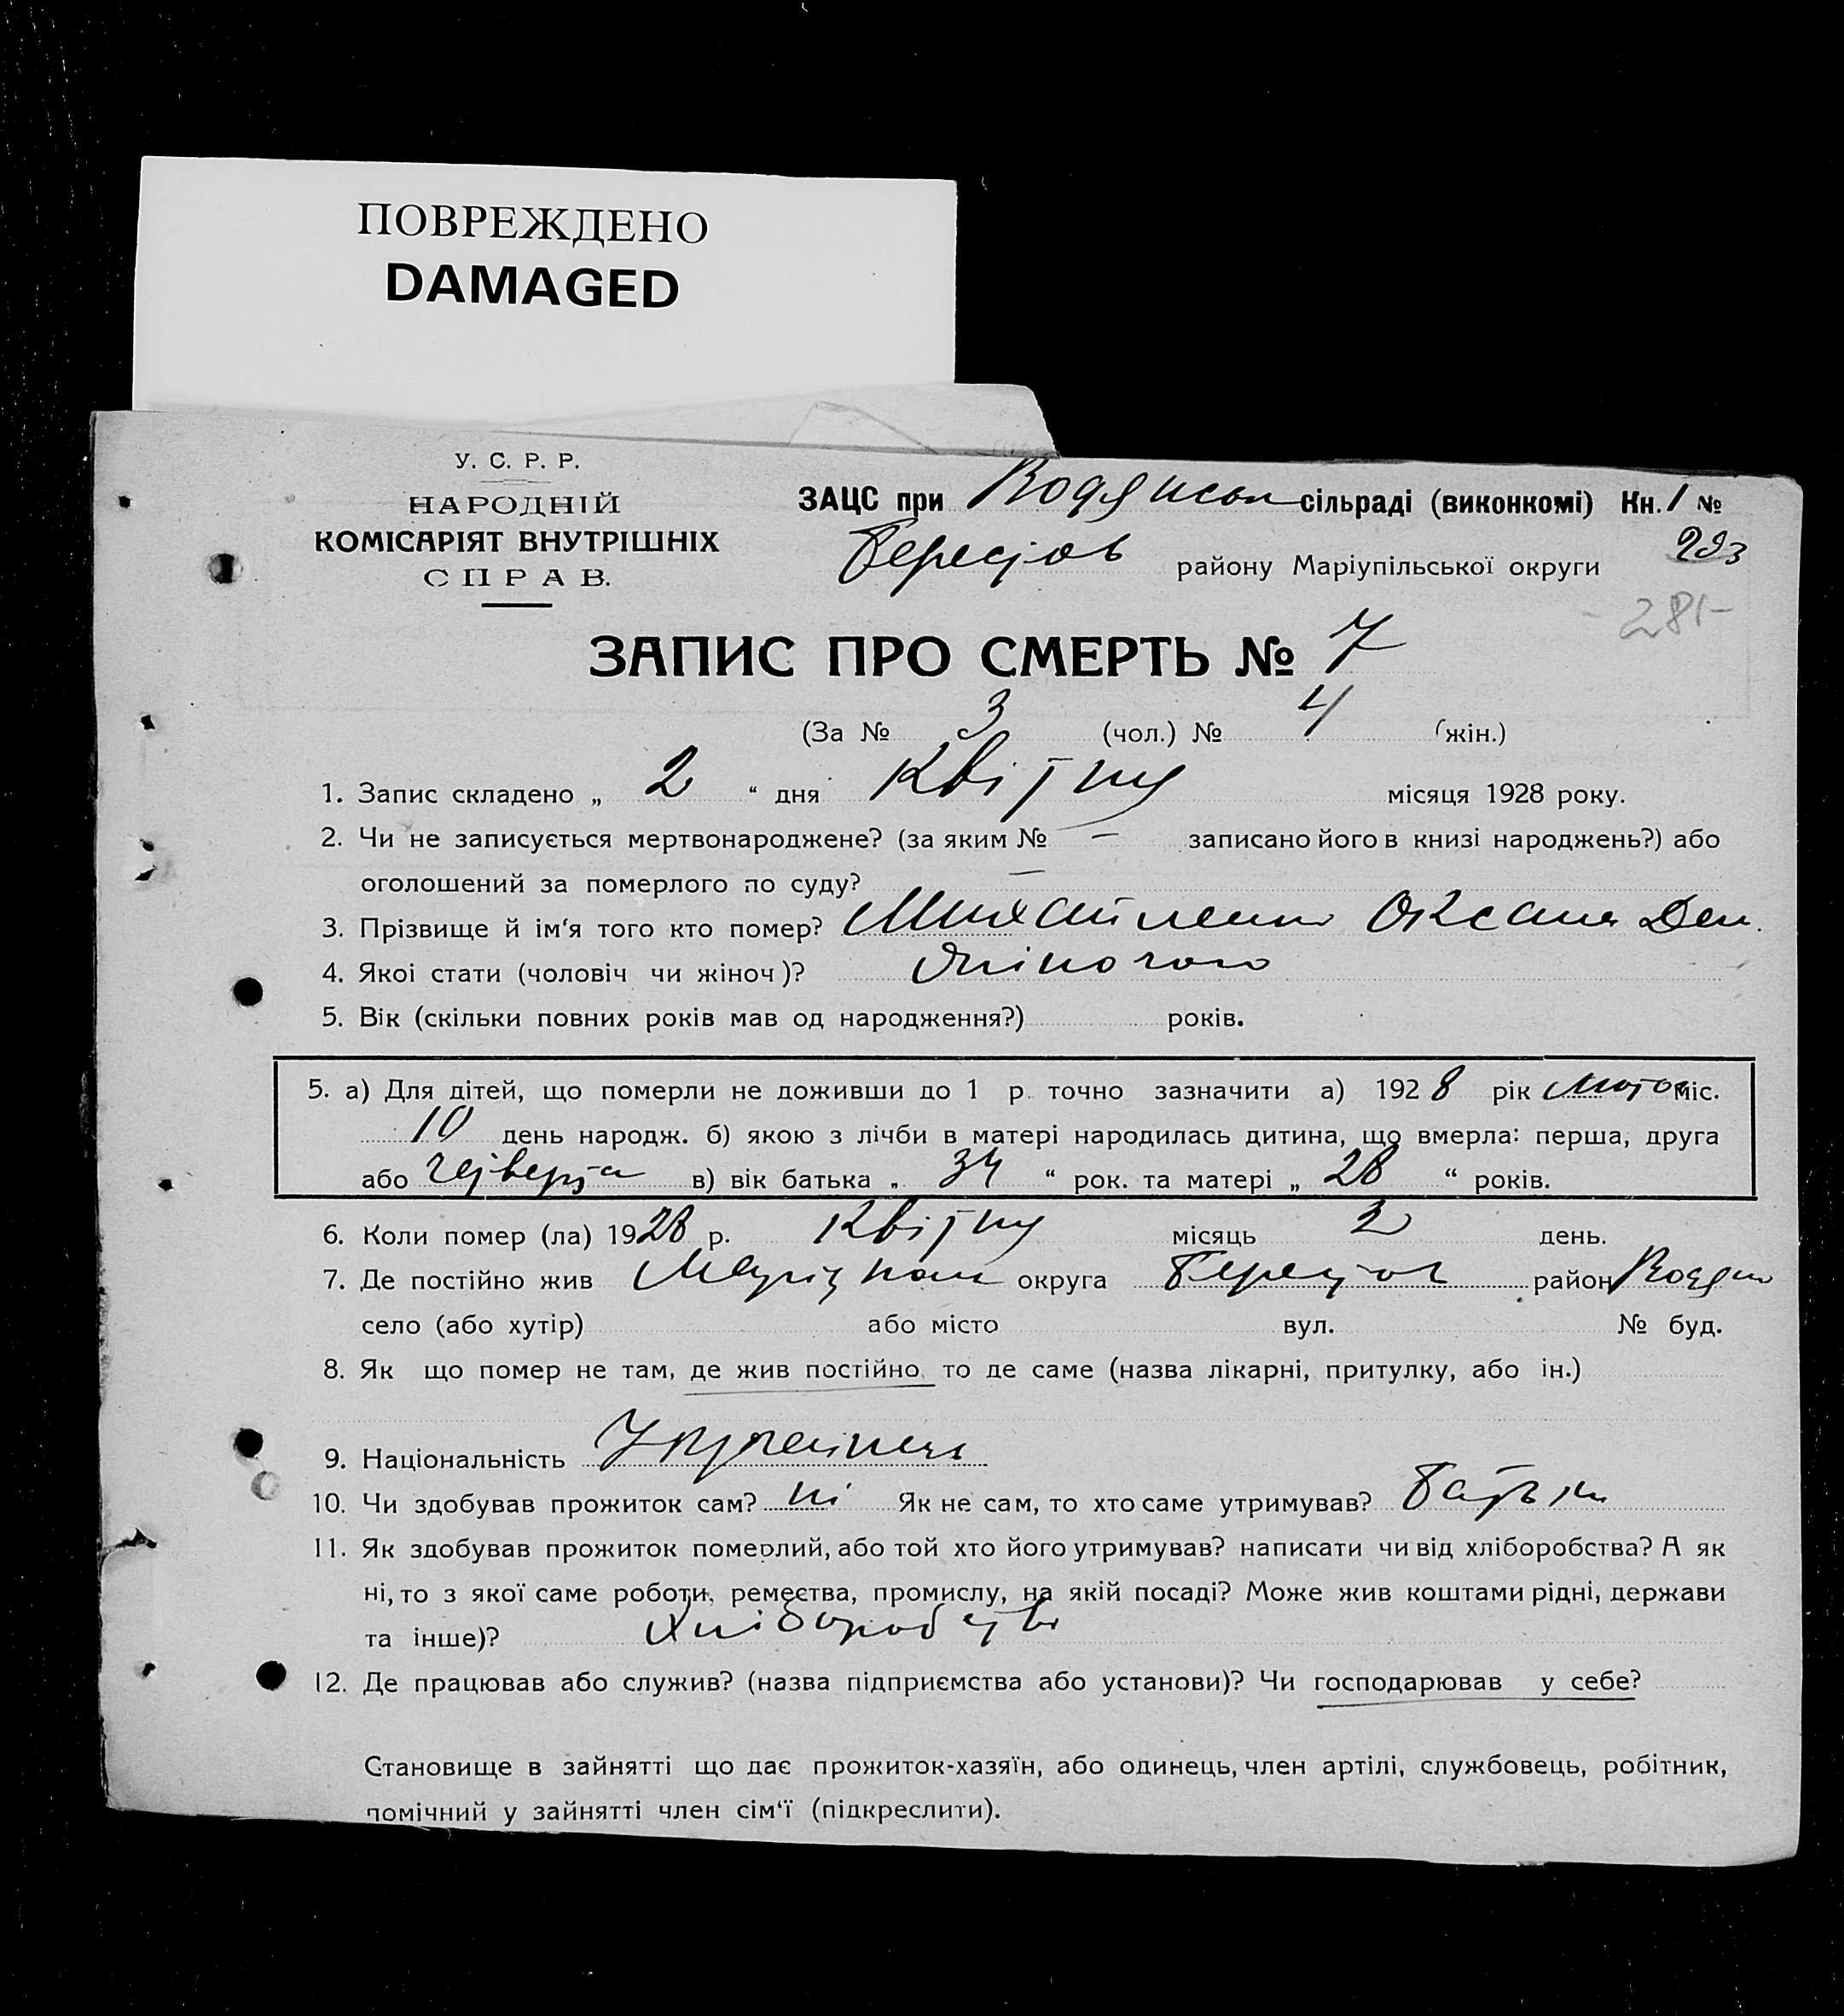 ПОВРЕЖДЕНО
DAMAGED
У. С. Р. Р.
НАРОДНІЙ
КОМІСАРІЯТ ВНУТРІШНІХ
СПРАВ.
ЗАЦС при Водянськ сільраді (виконкомі) Кн. 1 №
Берестов району Маріупільської округи 293
- 281 -
ЗАПИС ПРО СМЕРТЬ № 7
(За № 3 (чол.) № 4 (жін.)
1. Запис складено „ 2 “ дня Квітну місяця 1928 року.
2. Чи не записується мертвонароджене? (за яким № — записано його в книзі народжень?) або
оголошений за померлого по суду? —
3. Прізвище й ім‘я того кто помер? Михайленко Оксана Дем.
4. Якоі стати (чоловіч чи жіноч)? жіночого
5. Вік (скільки повних років мав од народження?) років.
5. а) Для дітей, що померли не доживши до 1 р. точно зазначити а) 1928 рік Лютого міс.
10 день народж. б) якою з лічби в матері народилась дитина, що вмерла: перша, друга
або четверта в) вік батька „ 34 “ рок. та матері „ 28 “ років.
6. Коли помер (ла) 1928 р. Квітну місяць 2 день.
7. Де постійно жив округа Берестов район Водян
село (або хутір) або місто вул. № буд.
8. Як що помер не там, де жив постійно, то де саме (назва лікарні, притулку, або ін.)
9. Національність
10. Чи здобував прожиток сам? ні Як не сам, то хто саме утримував? Батьки
11. Як здобував прожиток померлий, або той хто його утримував? написати чи від хліборобства? А як
ні, то з якої саме роботи, ремества, промислу, на якій посаді? Може жив коштами рідні, держави
та інше)? Хліборобств
12. Де працював або служив? (назва підприємства або установи)? Чи господарював у себе?
Становище в зайнятті що дає прожиток-хазяїн, або одинець, член артілі, службовець, робітник,
помічний у зайнятті член сім‘ї (підкреслити).